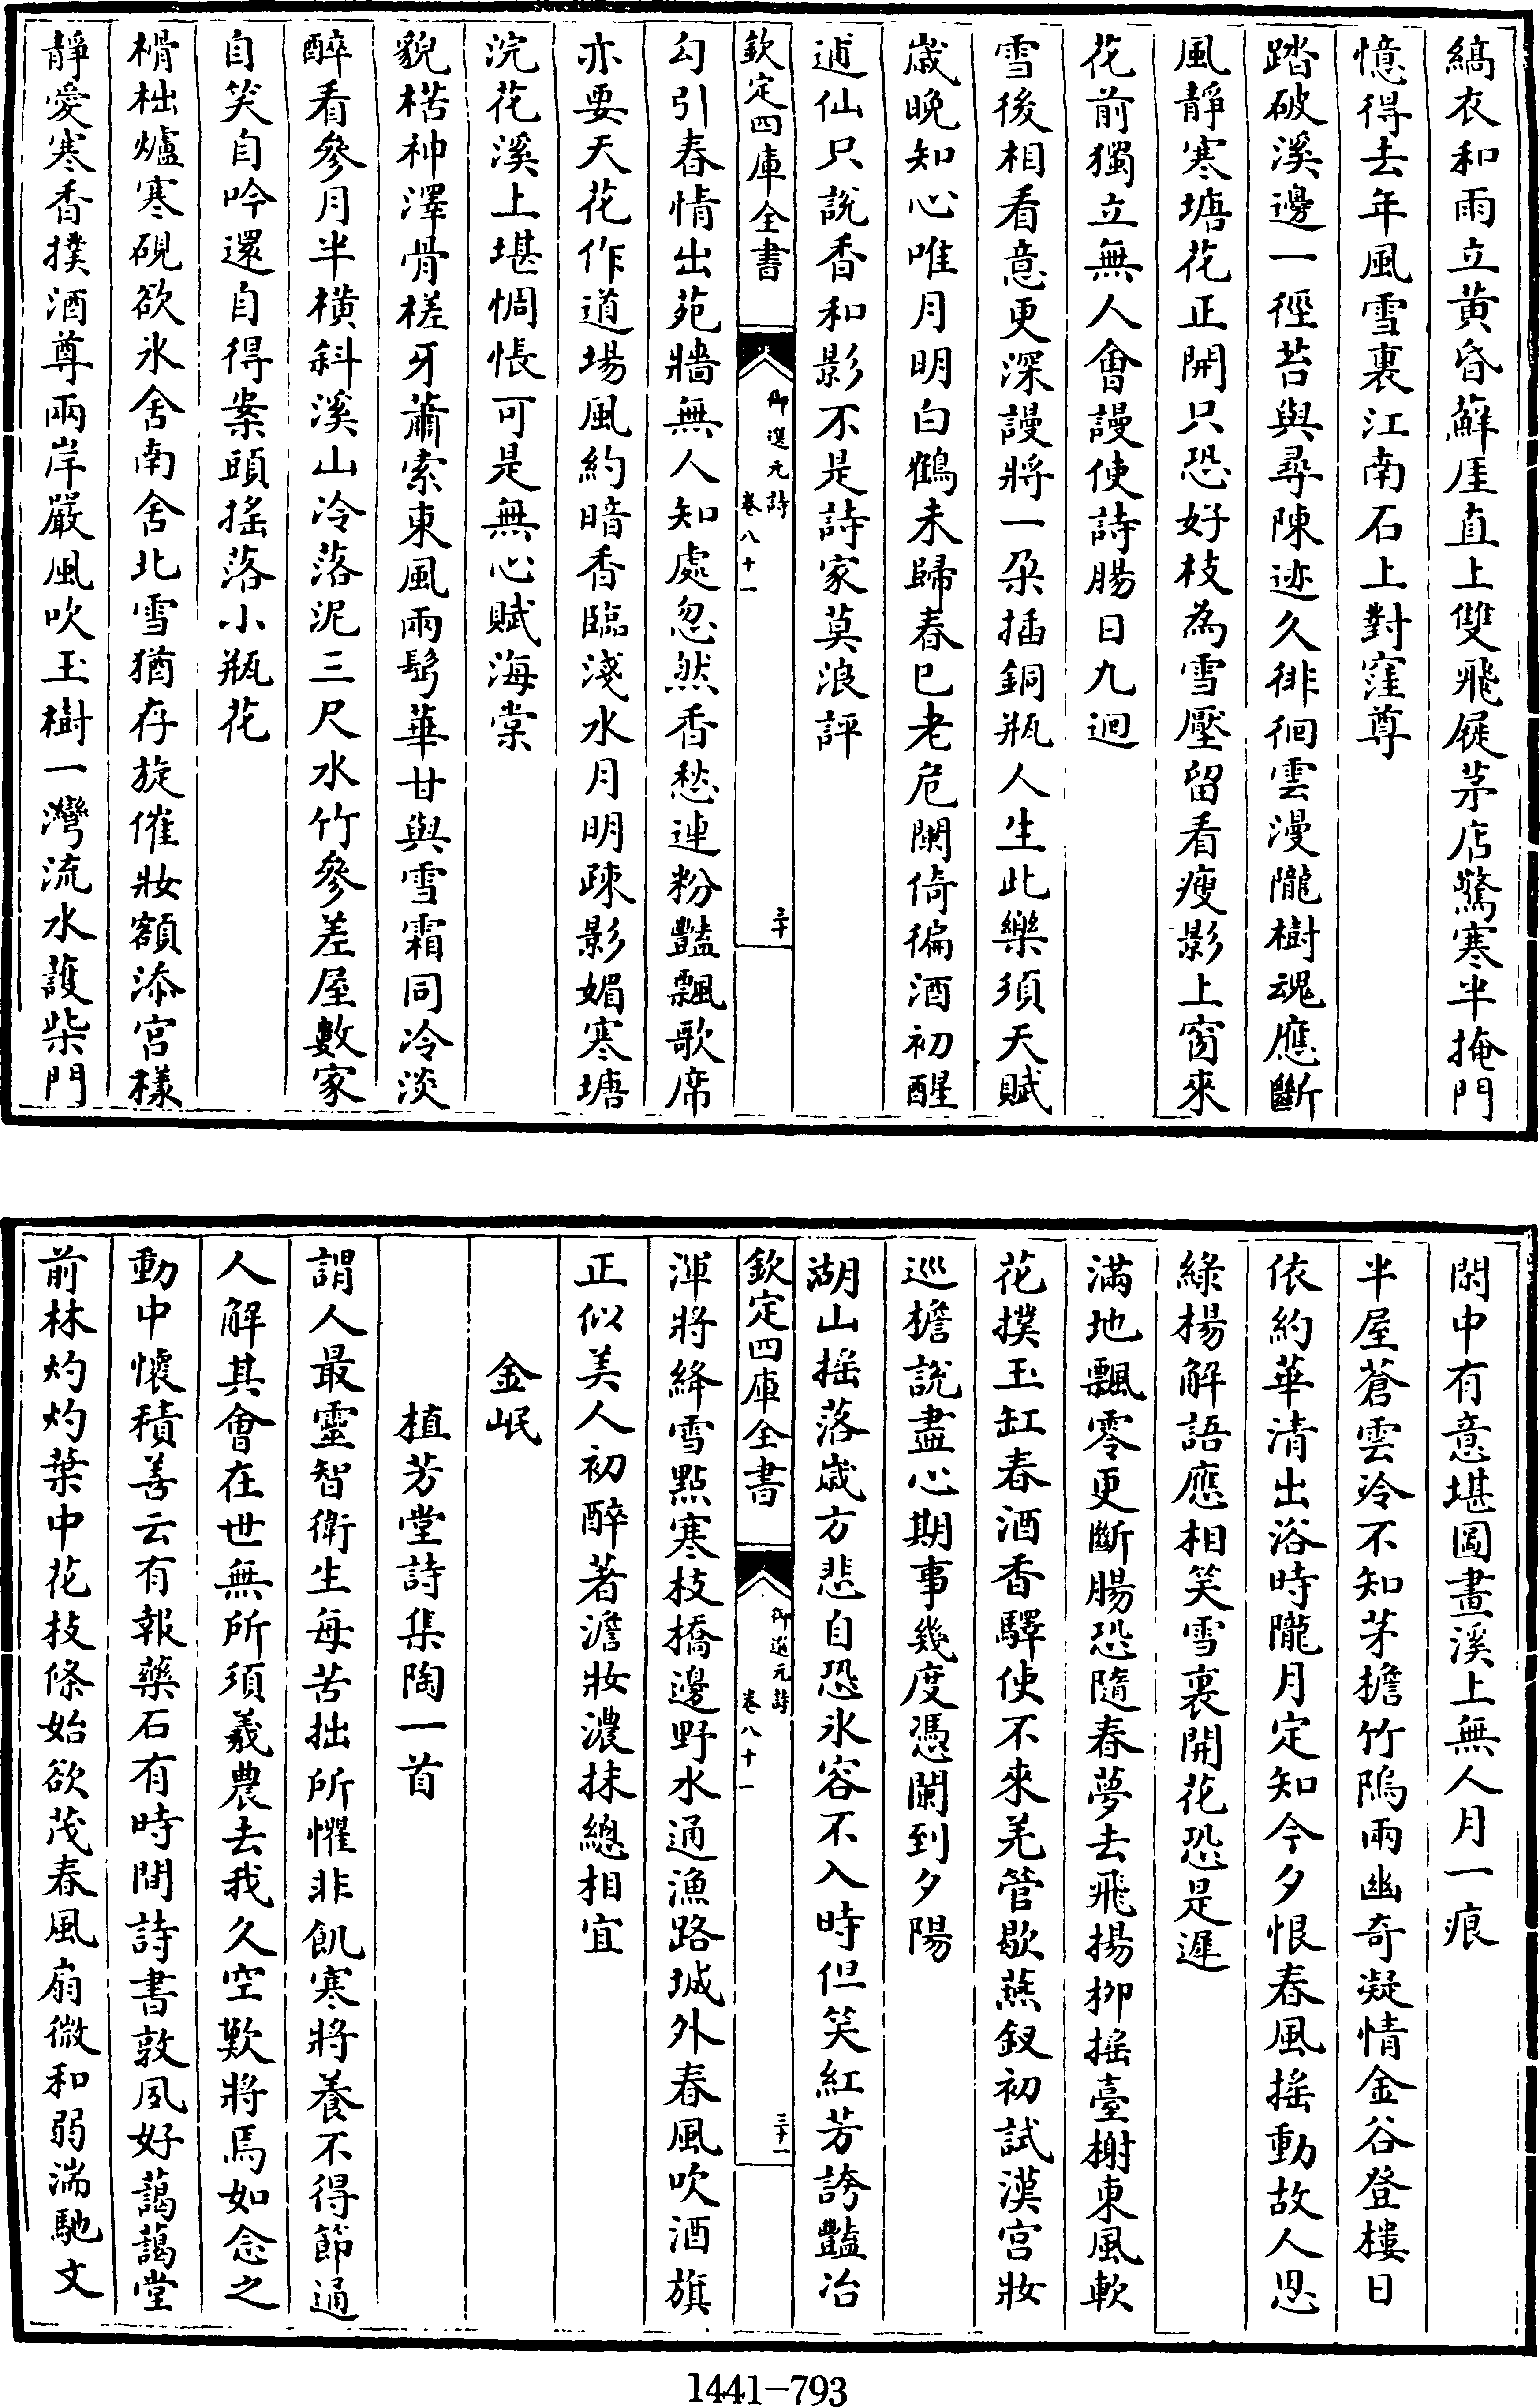 縞衣和雨立黃昏蘚厓直上雙飛屐茅店驚寒半掩門
憶得去年風雪裏江南石上對窪尊
踏破溪邊一徑苔與尋陳迹久徘徊雲漫隴樹魂應斷
風靜寒塘花正開只恐好枝為雪壓留看瘦影上窗來
花前獨立無人會謾使詩腸日九迴
雪後相看意更深謾將一朶插銅瓶人生此樂須天賦
歲晩知心唯月明白鶴未歸春已老危闌倚徧酒初醒
逋仙只說香和影不是詩家莫浪評
欽定四庫全書
御選元詩
卷八十一
三十
勾引春情出苑牆無人知處忽然香愁連粉豔飄歌席
亦要天花作道場風約暗香臨淺水月明疎影媚寒塘
浣花溪上堪惆悵可是無心賦海棠
貌楛神澤骨槎牙蕭索東風兩髩華甘與雪霜同冷淡
醉看參月半橫斜溪山冷落泥三尺水竹參差屋數家
自笑自吟還自得案頭搖落小瓶花
榾柮爐寒硯欲氷舍南舍北雪猶存旋催妝額添宫樣
靜愛寒香撲酒尊兩岸嚴風吹玉樹一灣流水護柴門
閑中有意堪圖畫溪上無人月一痕
半屋蒼雲冷不知茅檐竹隖兩幽奇凝情金谷登樓日
依約華清出浴時隴月定知今夕恨春風搖動故人思
綠楊解語應相笑雪裏開花恐是遲
滿地飄零更斷腸恐隨春夢去飛揚柳搖臺榭東風軟
花撲玉缸春酒香驛使不來羌管歇燕釵初試漢宫妝
巡檐說盡心期事幾度憑闌到夕陽
湖山搖落歲方悲自恐氷容不入時但笑紅芳誇豔冶
欽定四庫全書
御選元詩
卷八十一
三十一
渾將絳雪點寒枝橋邊野水通漁路城外春風吹酒旗
正似美人初醉著澹妝濃抹總相宜
金岷
植芳堂詩集陶一首
謂人最靈智衛生每苦拙所懼非飢寒將養不得節通
人解其會在世無所須羲農去我久空歎將焉如念之
動中懷積善云有報藥石有時閒詩書敦夙好藹藹堂
前林灼灼葉中花枝條始欲茂春風扇微和弱湍馳文
1441-793